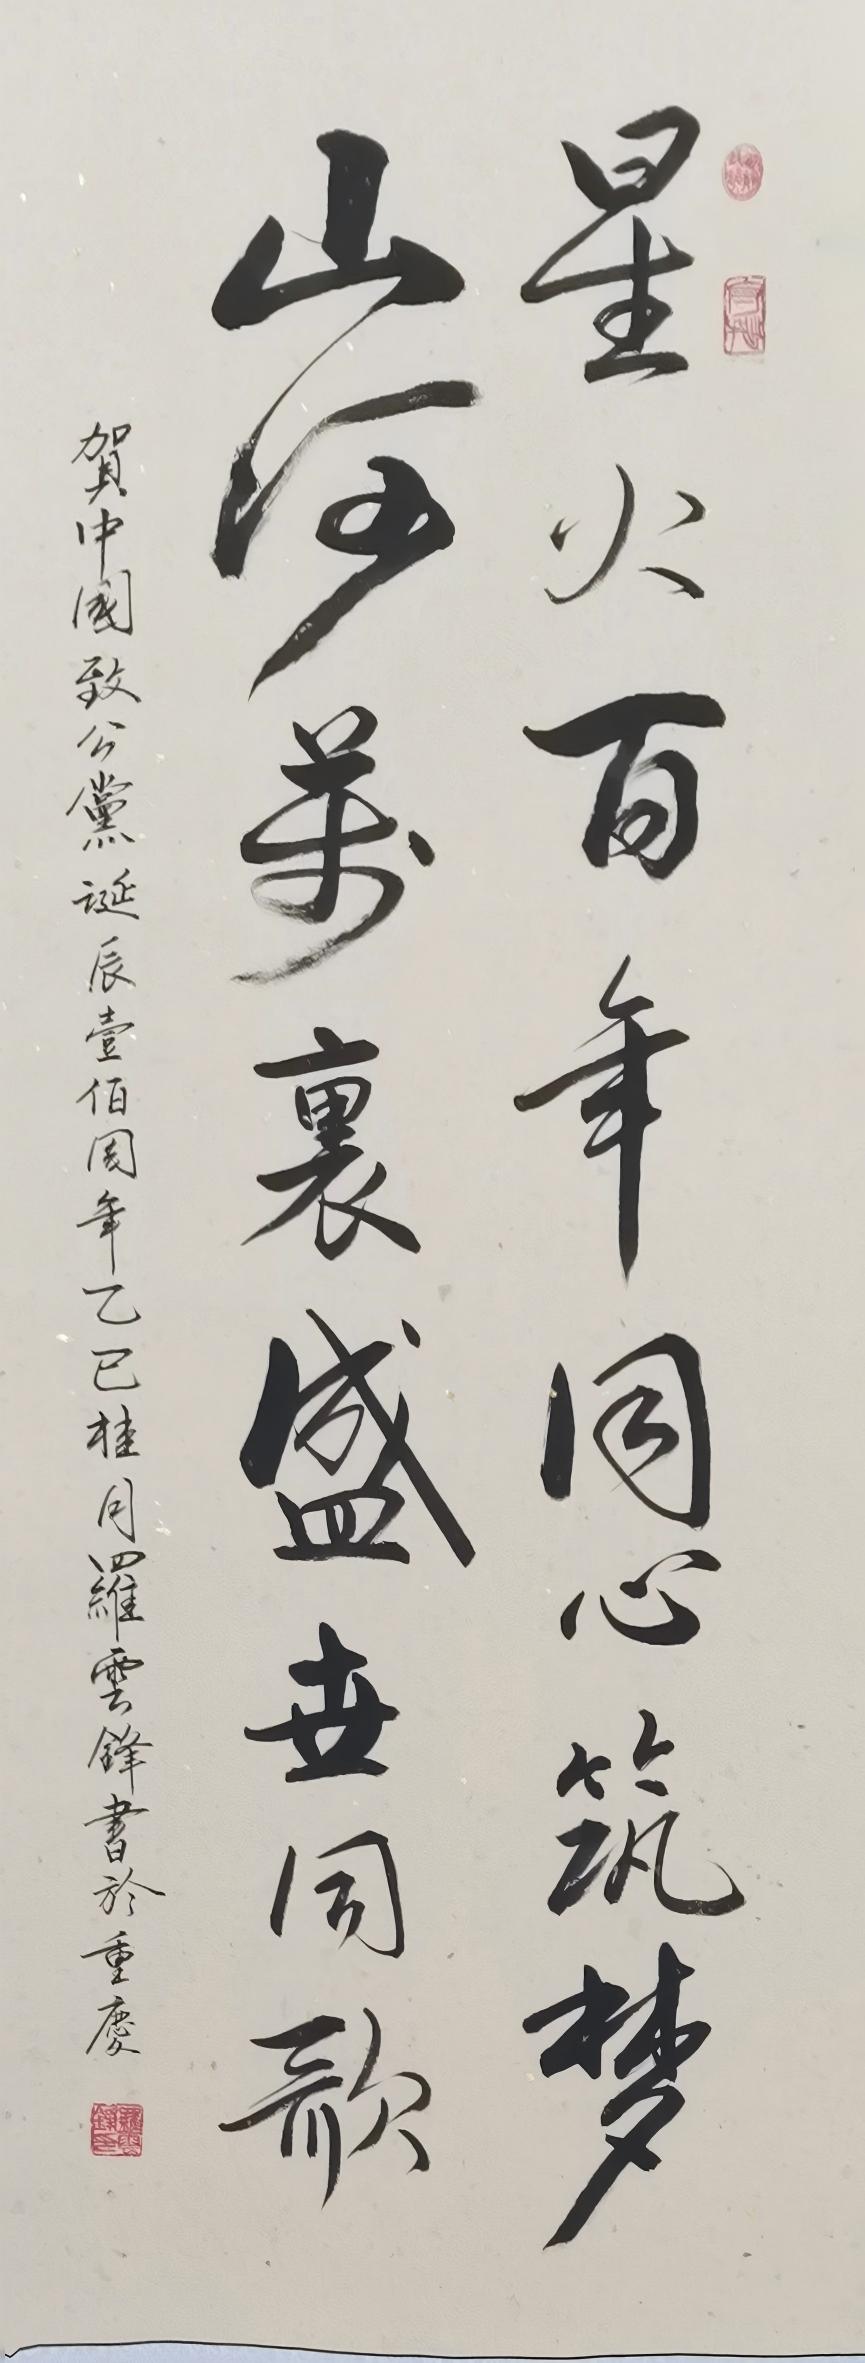 星火百年同心筑梦
山河萬裏盛世同歌
賀中國致公黨誕辰壹佰周年乙巳桂月羅雲鋒書於重慶